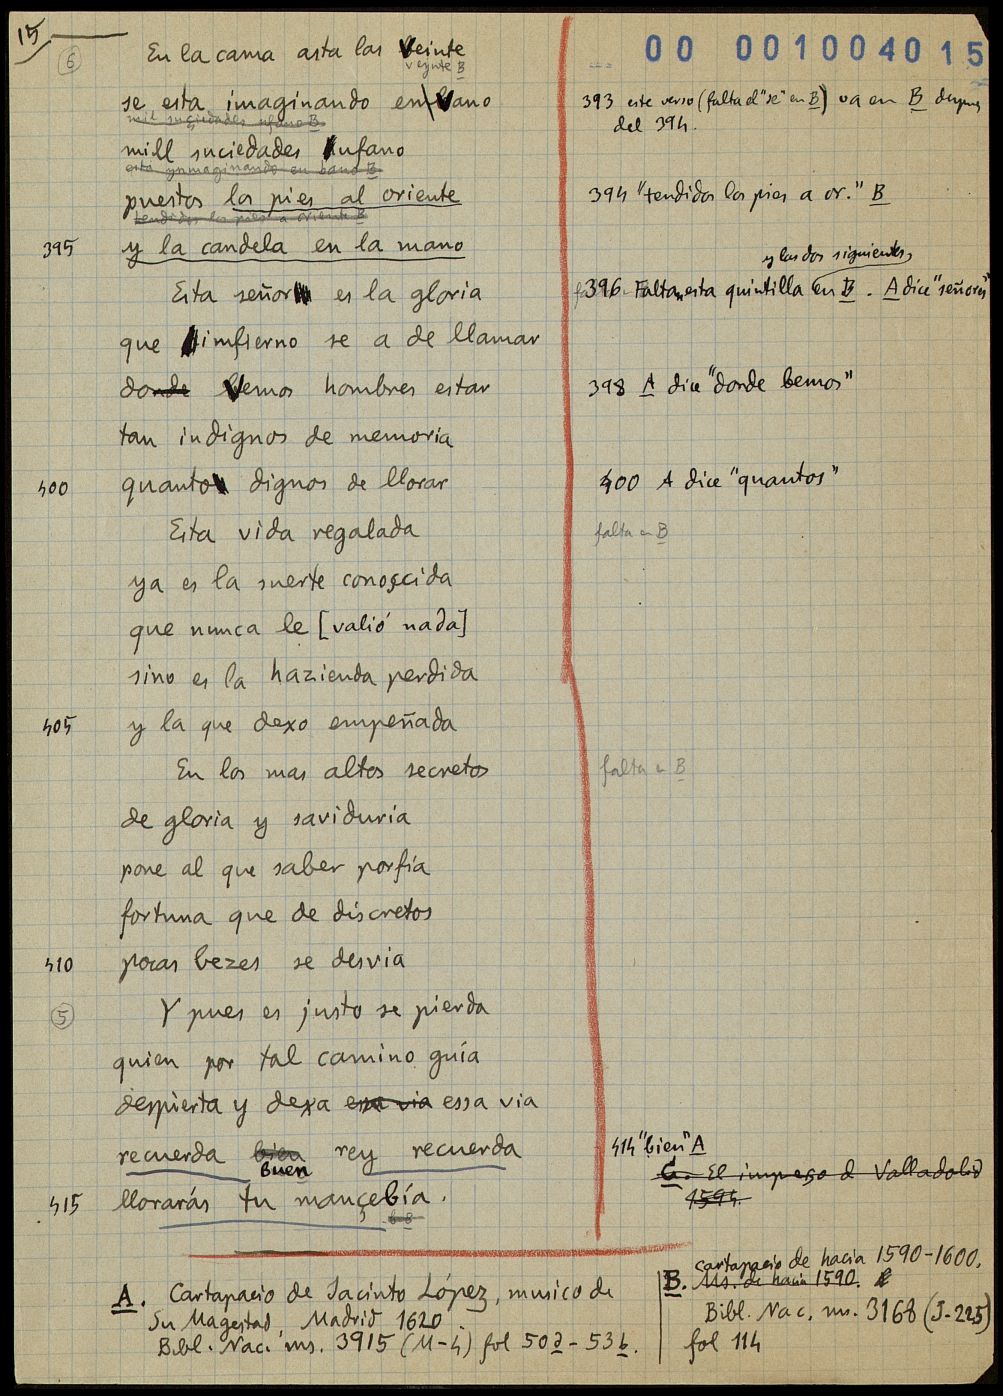 15
00 001004015
6
En la cama asta las veinte
veynte B
se esta imaginando en vano
mil suçiedades ufano B
mill suciedades ufano
esta ynmaginando en bano B
puestos los pies al oriente
tendidos los pies a oriente B
395 y la candela en la mano
Esta señor es la gloria
que imfierno se a de llamar
donde vemos hombres estar
tan indignos de memoria
400 quanto dignos de llorar
Esta vida regalada
ya es la suerte conoscida
que nunca le [valió nada]
sino es la hazienda perdida
405 y la que dexo empeñada
En los mas altos secretos
de gloria y saviduria
pone al que saber porfía
fortuna que de discretos
410 pocas bezes se desvia
5
Y pues es justo se pierda
quien por tal camino guía
despierta y dexa essa via essa via
recuerda bien rey recuerda
buen
415 llorarás tu mançebía.
b B
393 este verso (falta el "se" en B) va en B despues
del 394.
394 "tendidos los pies a or." B
y las dos siguientes,
396 Faltan esta quintilla en B. A dice "señores"
398 A dice "donde bemos"
400 A dice "quantos"
falta en B
falta en B
414 "bien" A
C. El impreso d Valladolid
1594.
A. Cartapacio de Jacinto López, musico de
Su Magestad, Madrid 1620.
Bibl. Nac. ms. 3915 (M-4) fol 50d-53b.
cartapacio de hacia 1590-1600.
B. Ms. de hacia 1590.
Bibl. Nac. ms. 3168 (J-225)
fol 114